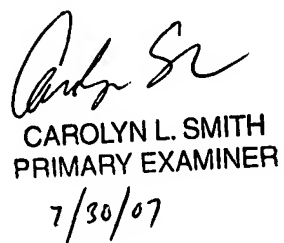 Carolyn S
CAROLYN L. SMITH
PRIMARY EXAMINER
7/30/07